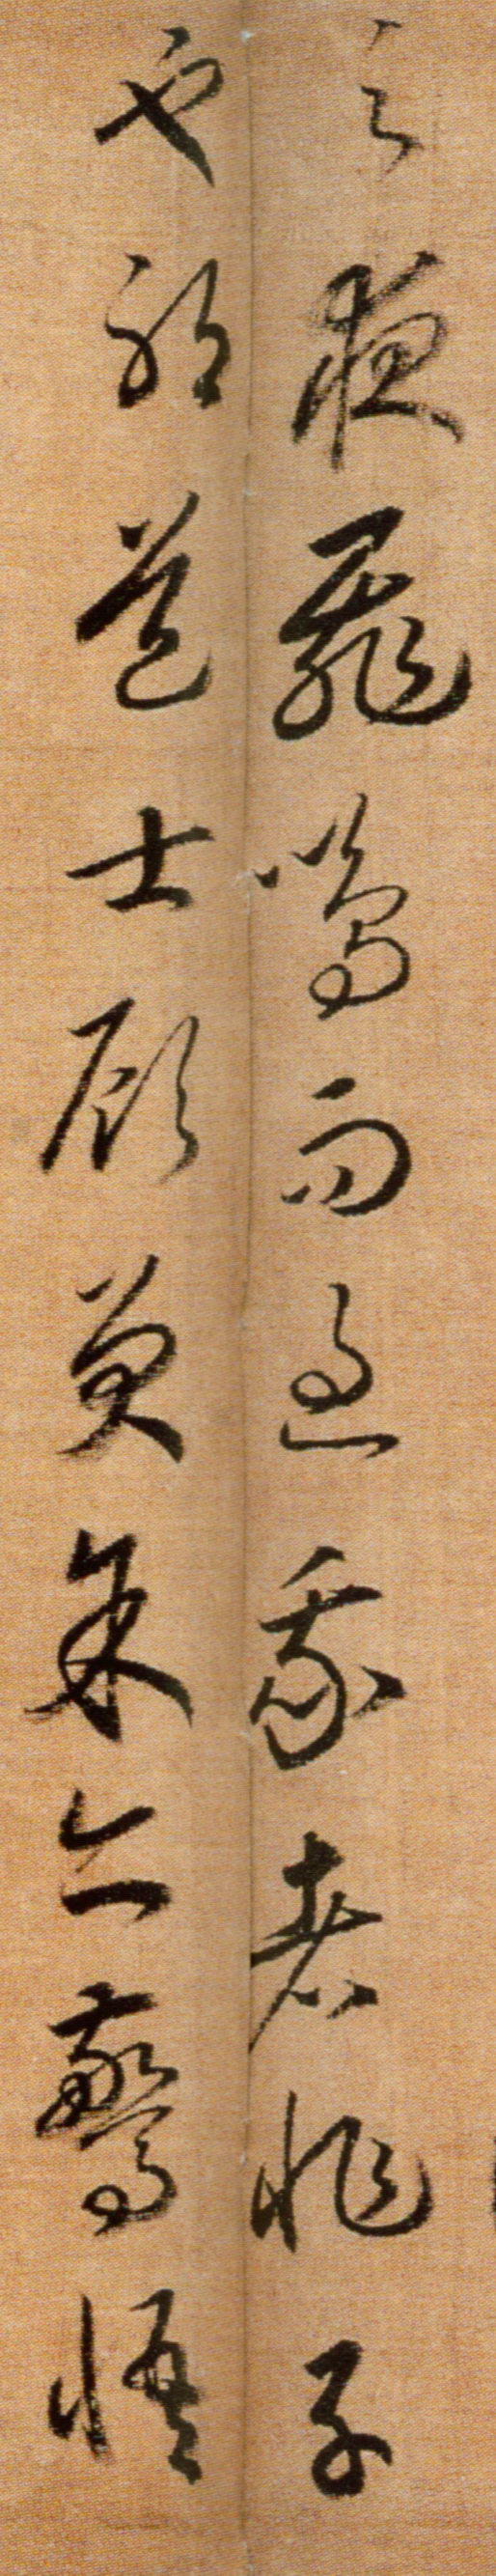 之夜飛鳴而過我者非子
也耶道士顧笑余亦驚悟